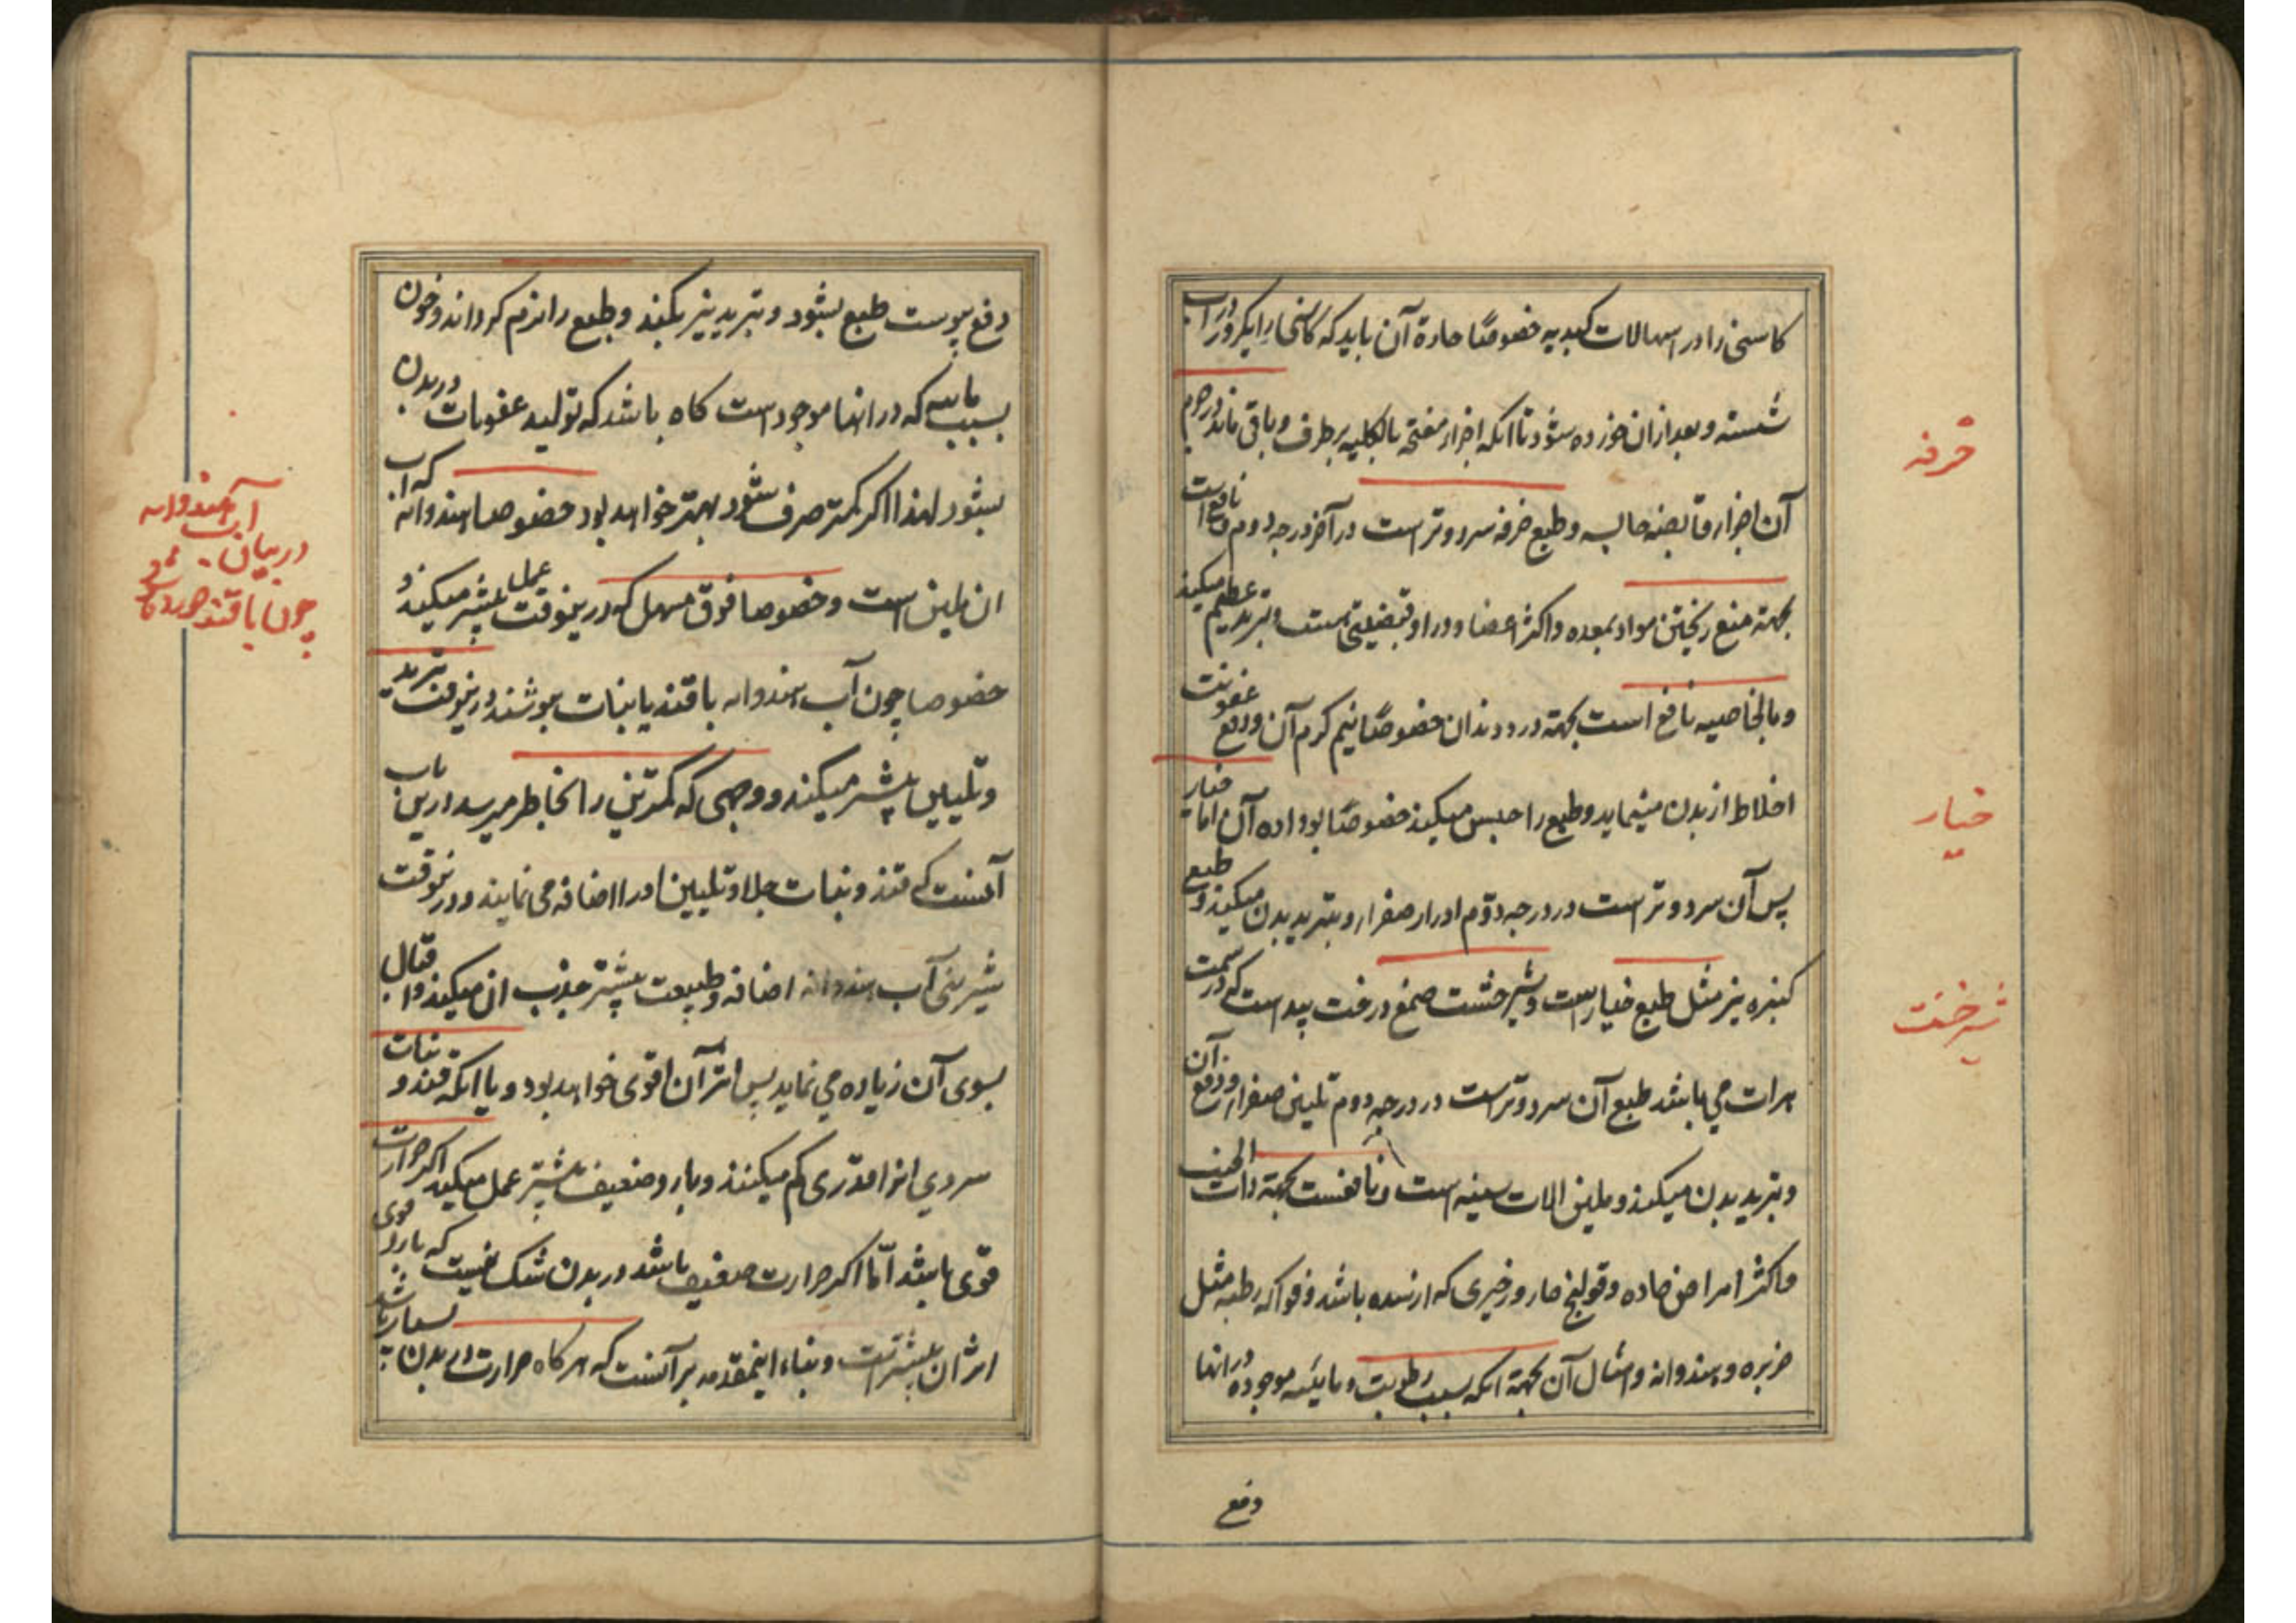 کاسنی را در اسهالات کبدیه خصوصًا حادة آن باید که کاسنی را یکروز در آب
شسته و بعد از ان خورده شود تا آنکه اجزاء مفتحه بالکلیه بر طرف و باقی ماند در جرم
آن اجزاء قابضه حابسه و طبع خرفه سرد و تر است در آخر درجه دوم و نافع است
بجهة منع ریختن مواد بمعده و اکثر اعضا و در او قبضیتی هست و تبرید عظیم میکند
و بالخاصیه نافع است بجهة درد دندان خصوصًا نیم گرم آن و دفع عفونت
اخلاط از بدن مینماید و طبع را حبس میکند خصوصًا بو داده آن اما خیار
پس آن سرد و تر است در درجه دوّم ادرار صفرا و تبرید بدن میکند و طبع
کنبزه نیز مثل طبع خیار است و شیرخشت صمغ درخت بید است که در سمت
هرات می باشد طبع آن سرد و تر است در درجه دوم تلیین صفرا و دفع آن
و تبرید بدن میکند و ملین الات سینه است و نافعست بجهة ذات الجنب
و اکثر امراض حاده و قولنج حار و زحیری که از سده باشد و فواکه رطبه مثل
خربزه و هندوانه و امثال آن بجهة آنکه بسبب رطوبت و مائیه موجوده در انها
دفع
خرفه
خیار
شیرخشت
دفع یبوست طبع بشود و تبرید نیز بکند و طبع را نرم گرداند و چون
بسبب مائیه که در انها موجود است گاه باشد که تولید عفونات در بدن
بشود لهذا اگر کمتر صرف شود بهتر خواهد بود خصوصا هندوانه که آب
ان ملین است و خصوصا فوق مسهل که در ینوقت عمل بیشتر میکند و
خصوصا چون آب هندوانه با قند یا نبات بنوشند در ینوقت تبرید
و تلیین بیشتر میکند و وجهی که کمترین را بخاطر میرسد در این باب
آنست که قند و نبات جلا و تلیین او را اضافه می نمایند و در ینوقت
شیرینی آب هندوانه اضافه و طبیعت بیشتر جذب ان میکند و اقبال
بسوی آن زیاده می نماید پس اثر آن اقوی خواهد بود و یا آنکه قند و نبات
سردی انرا قدری کم میکنند و بارد ضعیف بیشتر عمل میکند اگر حرارت
قوی باشد امّا اگر حرارت ضعیف باشد در بدن شک نیست که بارد قوی
اثر ان بیشتر است و بناء اینمقدمه بر آنست که هر گاه حرارت در بدن بسیار باشد
آب هندوانه
در بیان
چون با قند خورده شود